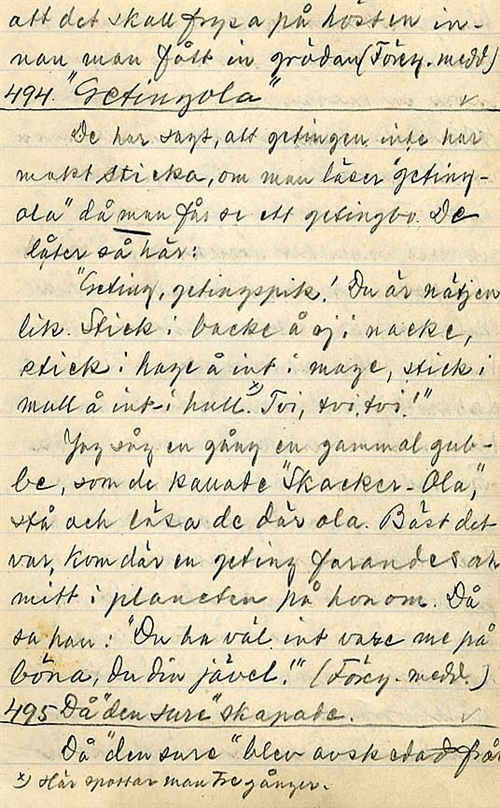 att det skall frysa på hösten in-
nan man fått in grödan (Föreg. medd)
494. "Getingola"
De har sagt, att getingen inte har
makt sticka, om man läser "geting-
ola" då man får se ett getingbo. De
låter så här:
"Geting, getingspik! Du är nätjen
lik. Stick i backe å ej i nacke,
stick i hage å int i mage, stick i
mull å int i hull.x) Tvi, tvi, tvi!"
Jag såg en gång en gammal gub-
be, som de kallade "Skacker-Ola",
stå och läsa de där ola. Bäst det
var, kom där en geting farandes ah
mitt i planeten på honom. Då
sa han: "Du ha väl int vare me på
böna, du din jävel!" (Föreg. medd.)
495 Då "den sure" skapade.
Då "den sure" blev avskedad från
x) Här spottar man tre gånger.